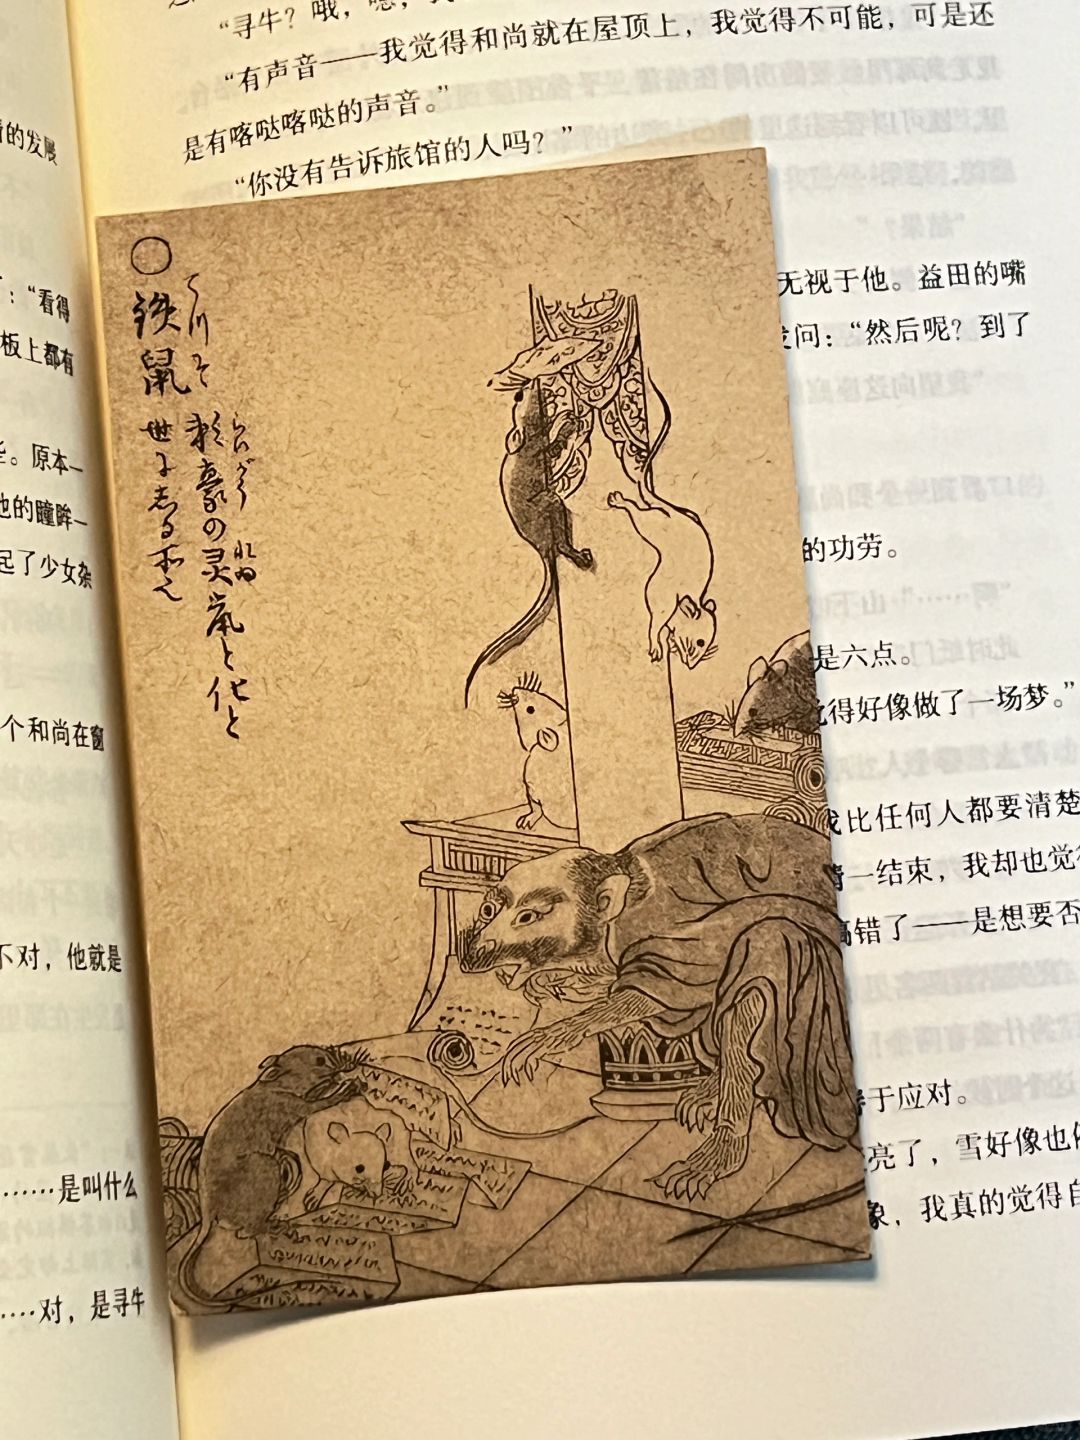 “寻牛？哦，嗯，
“有声音——我觉得和尚就在屋顶上，我觉得不可能，可是还
是有喀哒喀哒的声音。”
“你没有告诉旅馆的人吗？”
无视于他。益田的嘴
发问：“然后呢？到了
的功劳。
是六点。
觉得好像做了一场梦。”
我比任何人都要清楚
情一结束，我却也觉得
搞错了——是想要否
于应对。
亮了，雪好像也
象，我真的觉得自
的发展
：“看得
板上都有
。原本一
他的瞳眸一
起了少女杂
个和尚在窗
不对，他就是
……是叫什么
……对，是寻牛
○鉄鼠
てつそ
頼豪の灵鼠と化と
らいがう
れゐ
世に志る所也